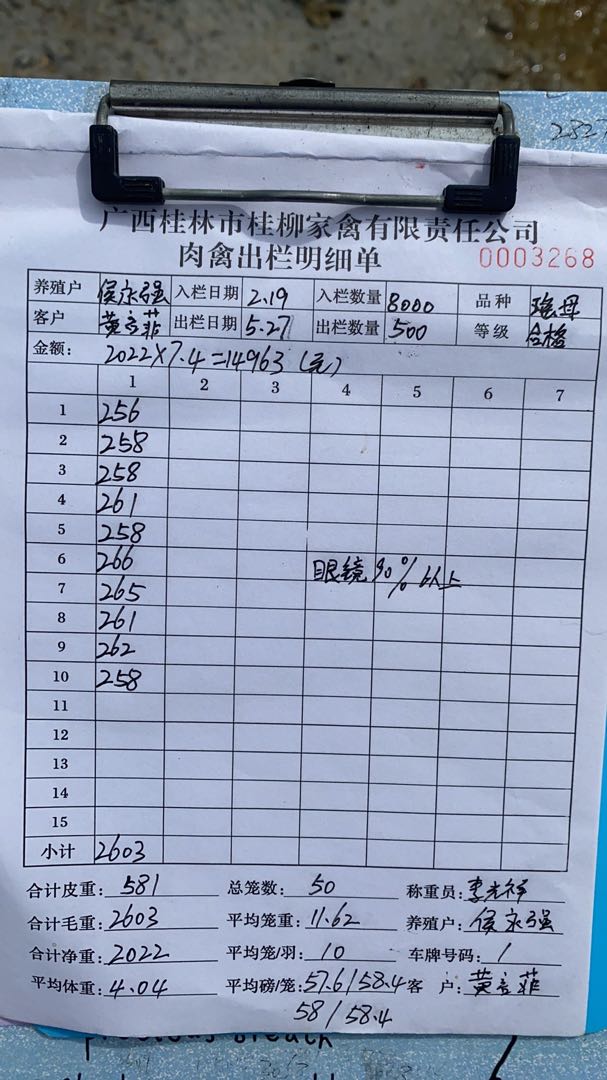 2527
广西桂林市桂柳家禽有限责任公司
肉禽出栏明细单 0003268
养殖户 侯永强 入栏日期 2.19 入栏数量 8000 品种 瑶母
客户 黄言菲 出栏日期 5.27 出栏数量 500 等级 合格
金额: 2022×7.4=14963(元)
1 2 3 4 5 6 7
1 256
2 258
3 258
4 261
5 258
6 266
眼镜90%以上
7 265
8 261
9 262
10 258
11
12
13
14
15
小计 2603
合计皮重: 581 总笼数: 50 称重员: 李光祥
合计毛重: 2603 平均笼重: 11.62 养殖户: 侯永强
合计净重: 2022 平均笼/羽: 10 车牌号码: /
平均体重: 4.04 平均磅/笼: 57.6/58.4 客 户: 黄言菲
58/58.4
precious breath